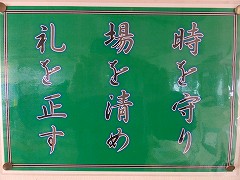 時を守り
場を清め
礼を正す